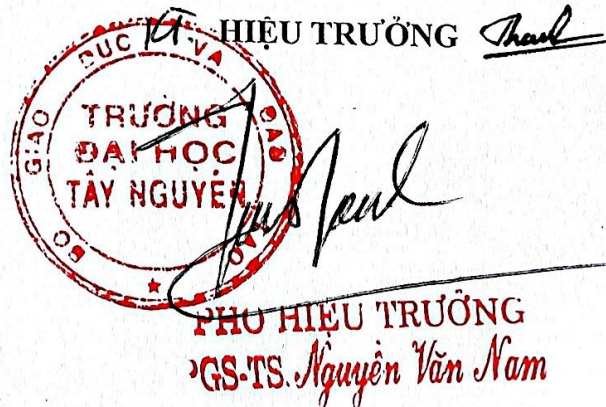 KT HIỆU TRƯỞNG
BỘ GIÁO DỤC VÀ ĐÀO TẠO
TRƯỜNG
ĐẠI HỌC
TÂY NGUYÊN
PHÓ HIỆU TRƯỞNG
PGS-TS. Nguyễn Văn Nam